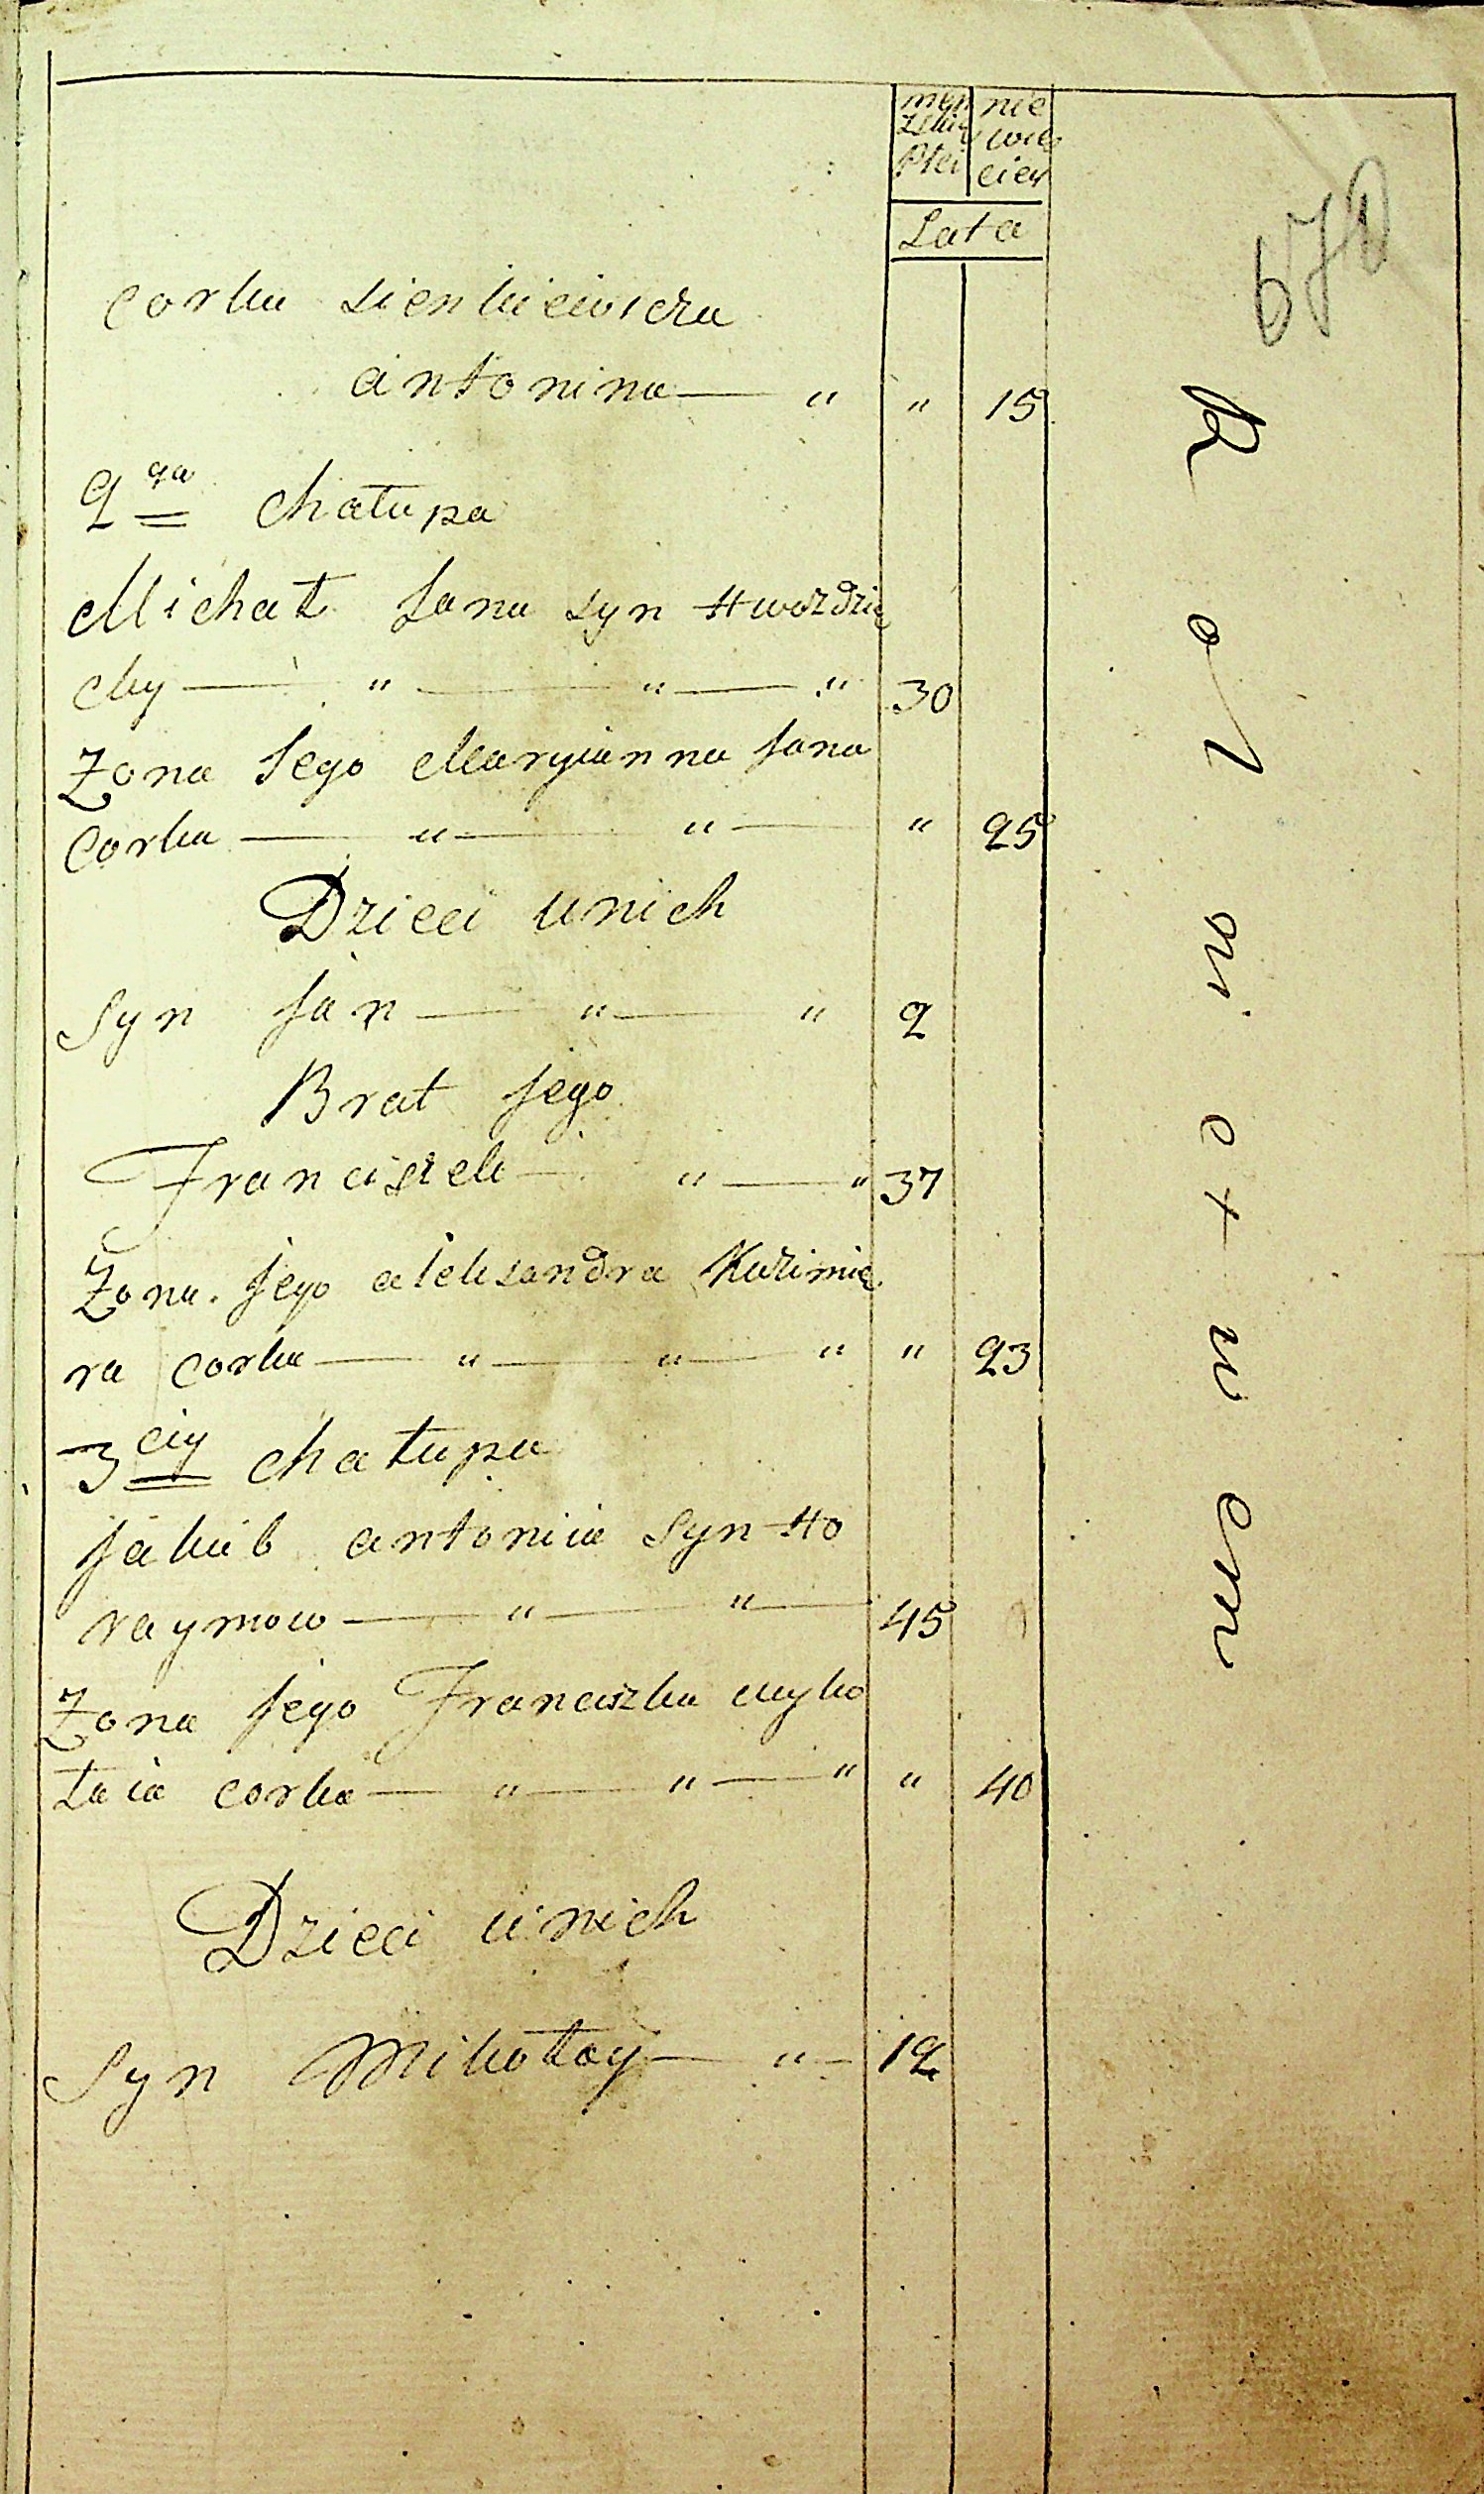 męn nie
zkiey wie
Płci ciey
Lata
670
corka Sienkiewicza
antonina — " " 15
2ga chałupa
Michał Jana syn Hwozdzie
cky — " — " — " 30
Zona Jego Maryianna Jana
corka — " — " — " 25
Dzieci unich
Syn Jan — " — " 2
Brat Jego
Franciszek — " — " 37
Zona. Jego alexandra Kazimie
ra corka — " — " — " " 23
3cia chałupa
Jakub antonia Syn Ho
raymow — " — " — 45
Zona Jego Franciszka Myko
łaia corka — " — " — " " 40
Dzieci unich
Syn Mikołay — " — 12